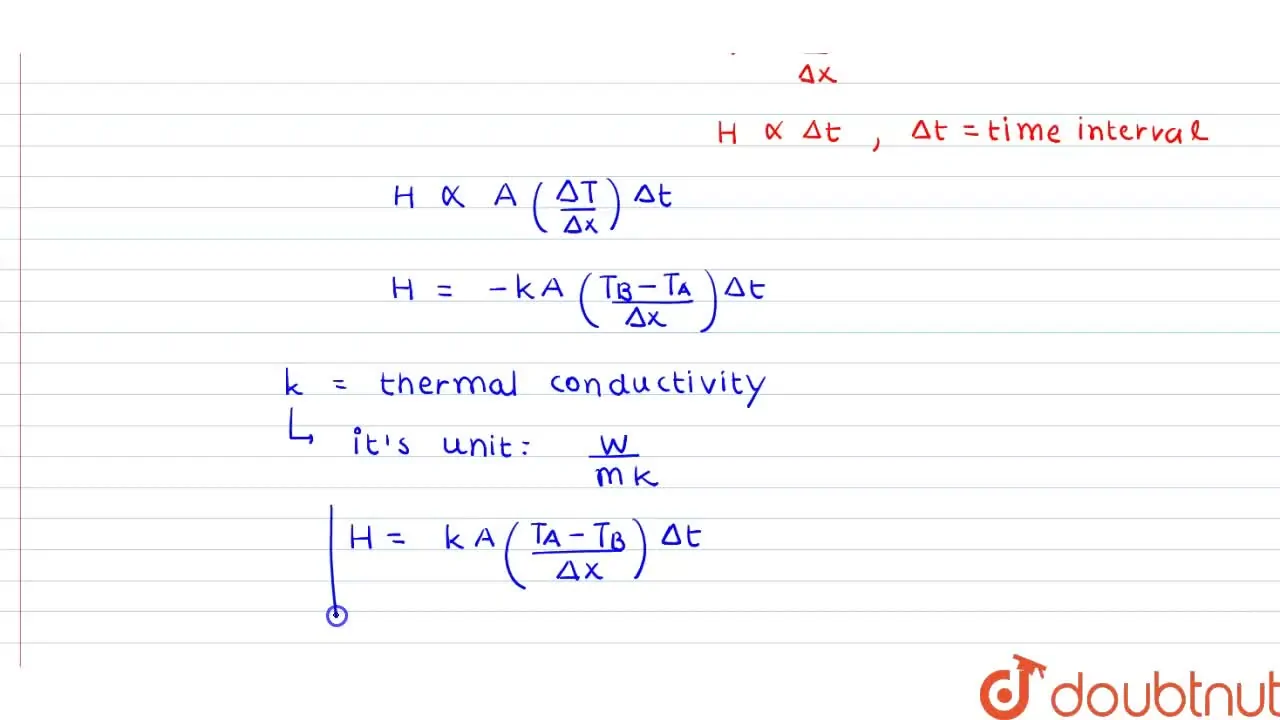 Δx
H ∝ Δt , Δt = time interval
H ∝ A (ΔT/Δx) Δt
H = -kA (TB - TA/Δx) Δt
k = thermal conductivity
it's unit: W/mk
H = kA (TA - TB/Δx) Δt
doubtnut